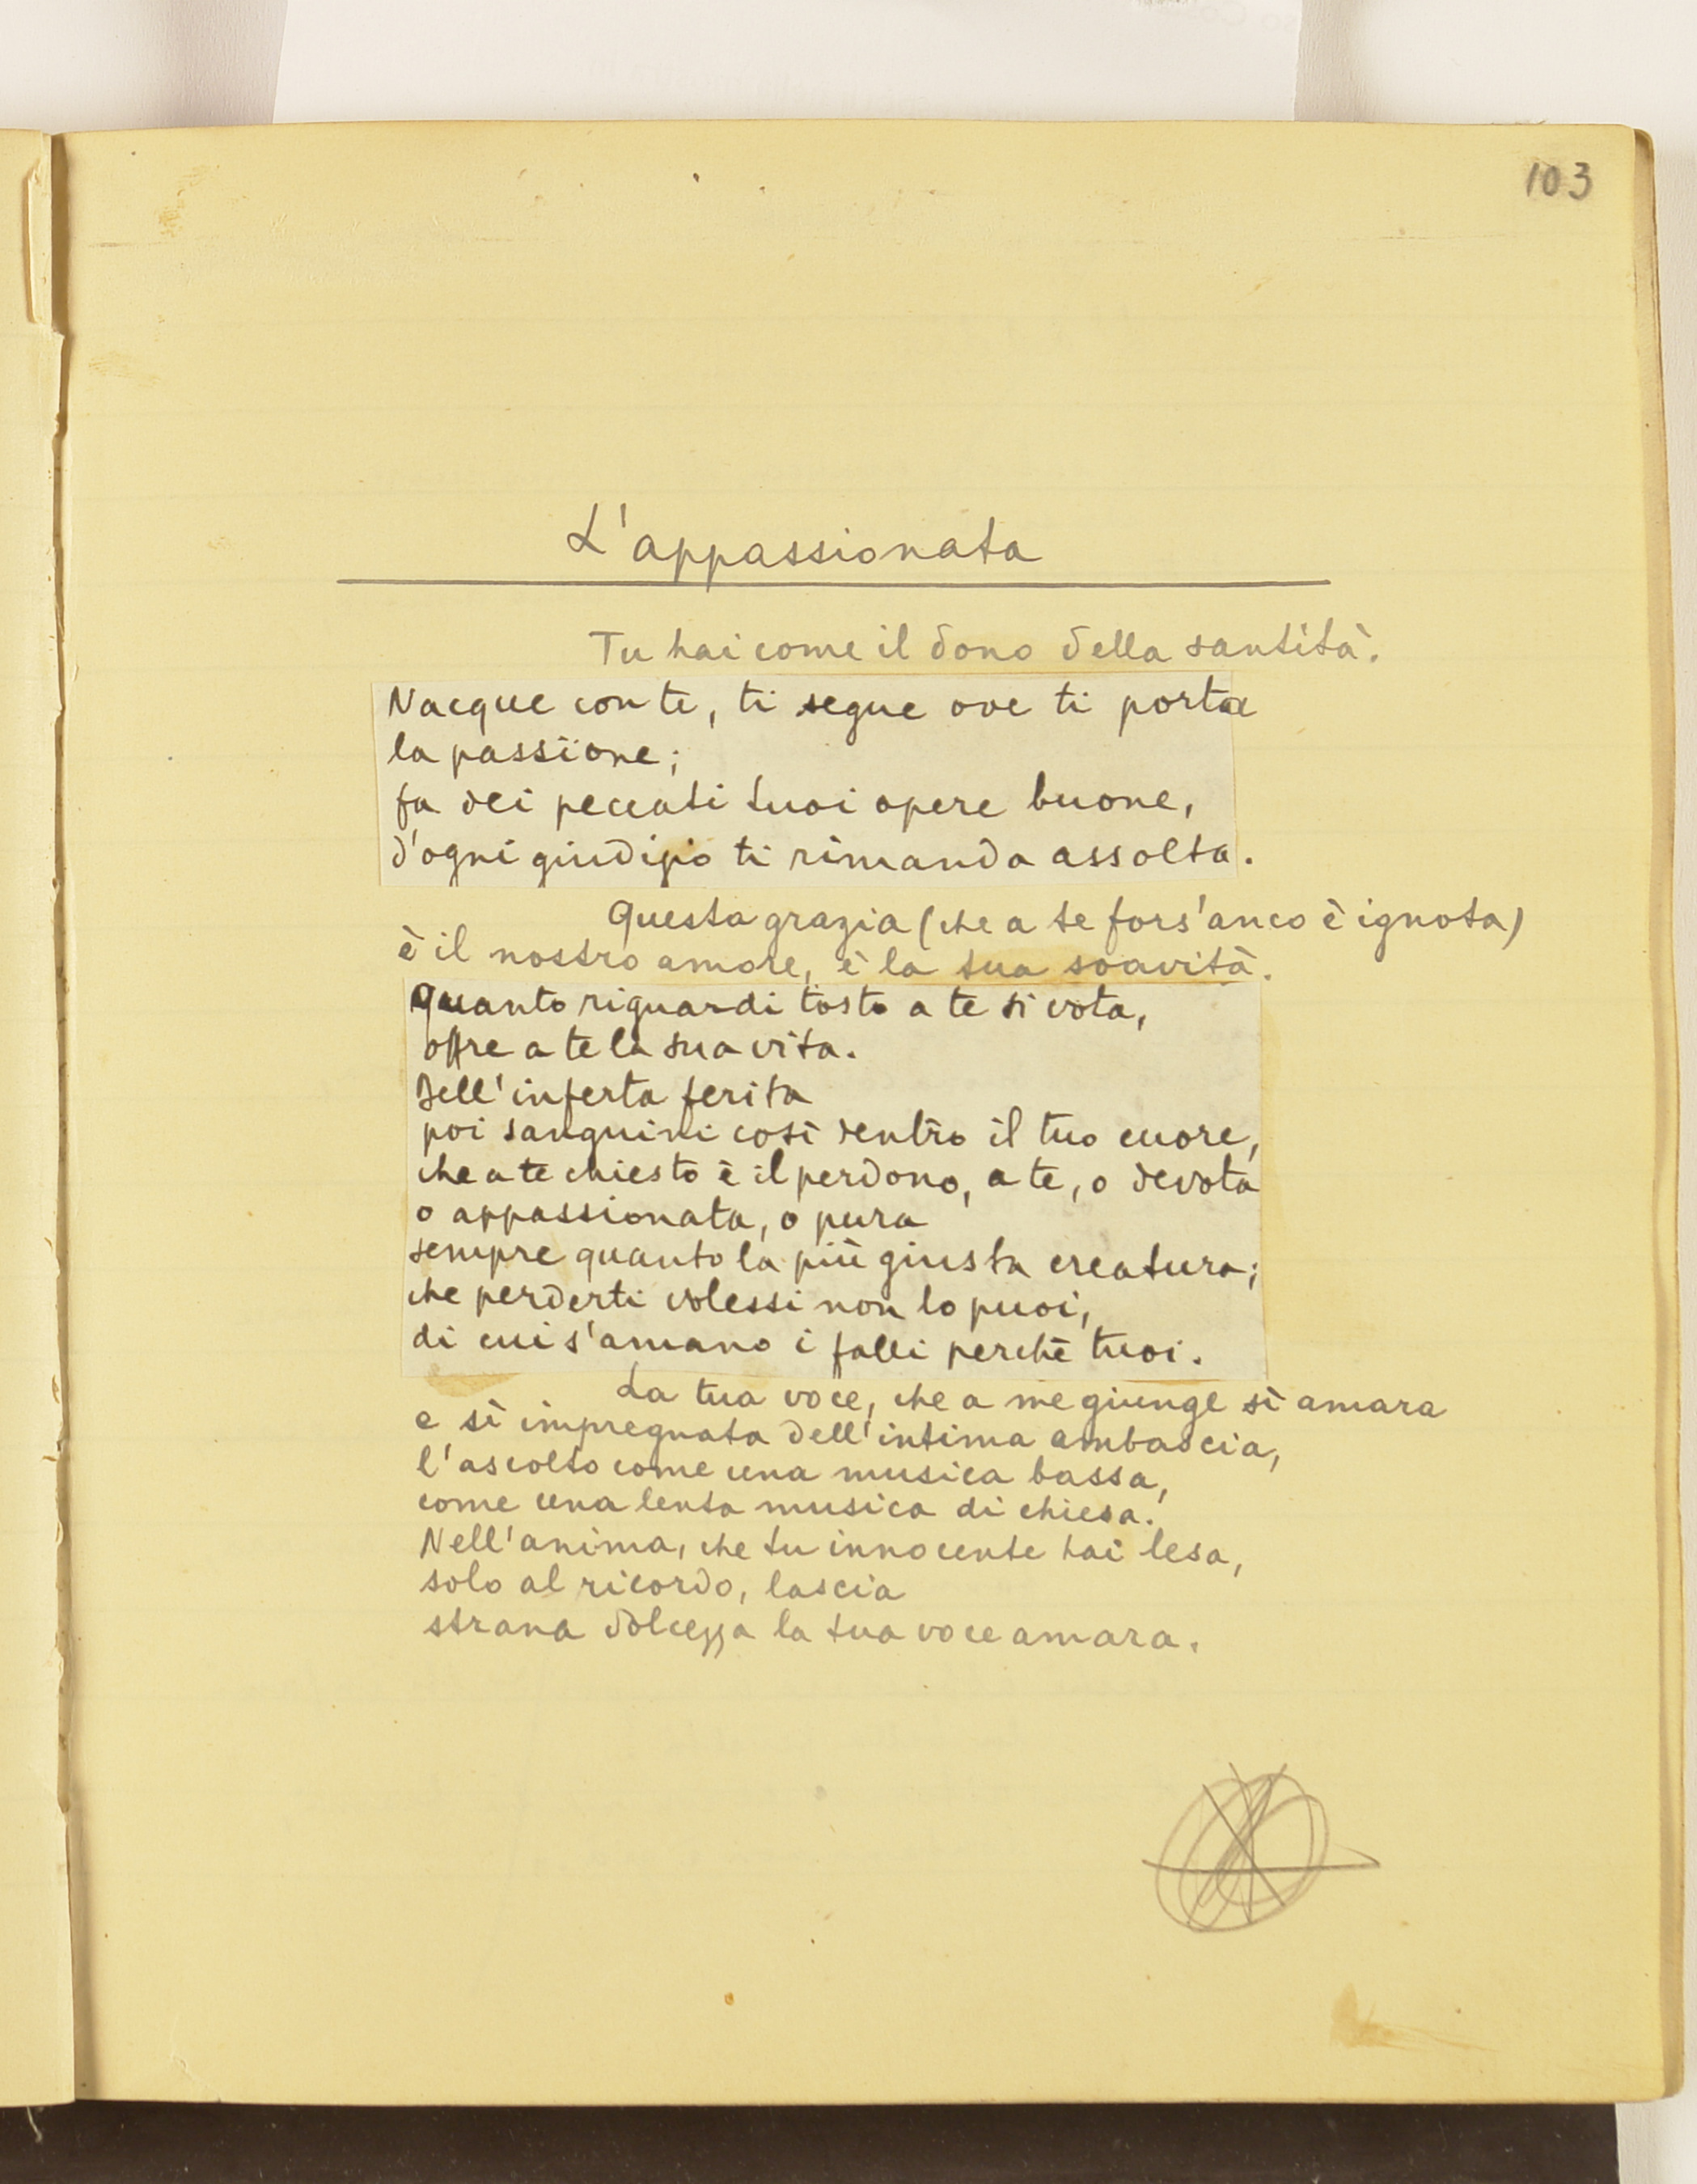 103
L'appassionata
Tu hai come il dono della santità.
Nacque con te, ti segue ove ti porta
la passïone;
fa dei peccati tuoi opere buone,
d'ogni giudizio ti rimanda assolta.
Questa grazia (che a te fors'anco è ignota)
è il nostro amore, è la tua soavità.
Quanto riguardi tosto a te si vota,
offre a te la sua vita.
Dell'inferta ferita
poi sanguini così dentro il tuo cuore,
che a te chiesto è il perdono, a te, o devota
o appassionata, o pura
sempre quanto la più giusta creatura;
che perderti volessi non lo puoi,
di cui s'amano i falli perchè tuoi.
La tua voce, che a me giunge sì amara
e sì impregnata dell'intima ambascia,
l'ascolto come una musica bassa,
come una lenta musica di chiesa.
Nell'anima, che tu innocente hai lesa,
solo al ricordo, lascia
strana dolcezza la tua voce amara.